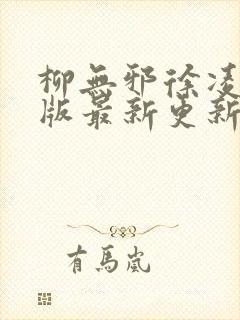 柳無邪徐凌
版最新更新
有馬嵐